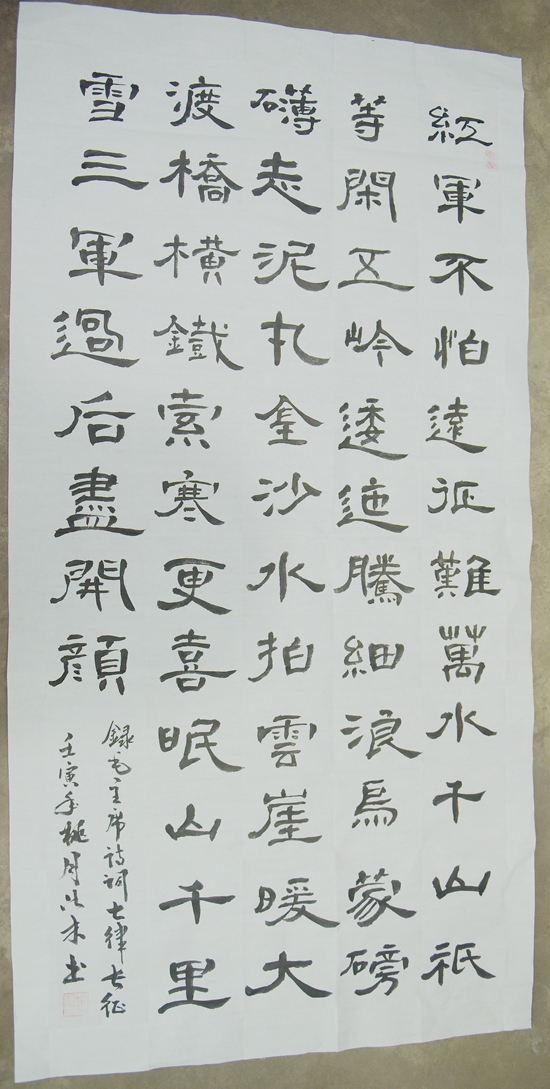 紅軍不怕遠征難萬水千山衹
等閑五岭逶迤騰細浪烏蒙磅
礴走泥丸金沙水拍雲崖暖大
渡橋橫鐵索寒更喜眠山千里
雪三軍過后盡開顔
錄毛主席詩詞七律長征
壬寅年桃月木書